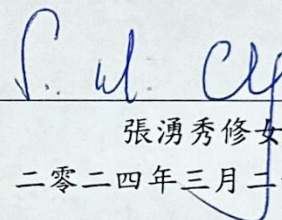 張湧秀修女
二零二四年三月二